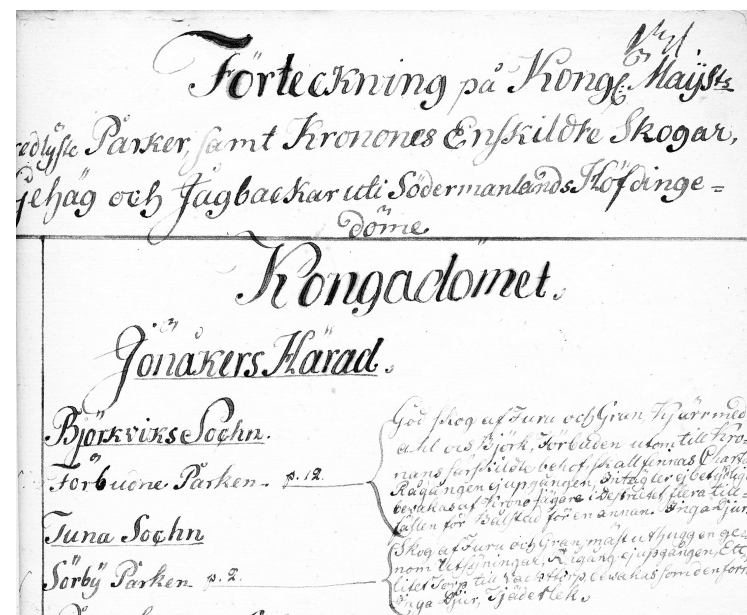 Förteckning på Kongl. Maijsts
redlyste Pärker, samt Kronones Enskildte Skogar,
Jehäg och Jagbackar uti Södermanlands Höfdinge=
döme
Kongadömet.
Jönåkers Härad.
Björkviks Sochn.
Förbudne Parken. p. 12.
Tuna Sochn
Sörby Parken p. 2.
God skog af Furu och Gran Kjärr med
ahl och Björk, Förbuden utom till Kro=
nans särskildte behof skall finnas Charta
Rågången ej upgången, Intag ler ej betydlig
bevakas af Krono Jägare i Destrictet flera till=
fällen för Bålstad för en annan. Inga Djur
Skog af Furu och Gran, mäst uthuggen ge=
nom Utsyningar, Rågång ej upgången, Ett
litet Torp till bevakas som den förr
Inga Djur, Tjäderlek.